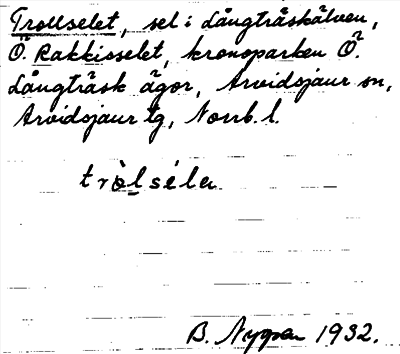 Trollselet, sel i Långträskälven,
Ö. Rakkisselet, kronoparken Ö.
Långträsk ägor, Arvidsjaur sn,
Arvidsjaur tg, Norrb. l.
tròlséla
B. Nygren 1932.